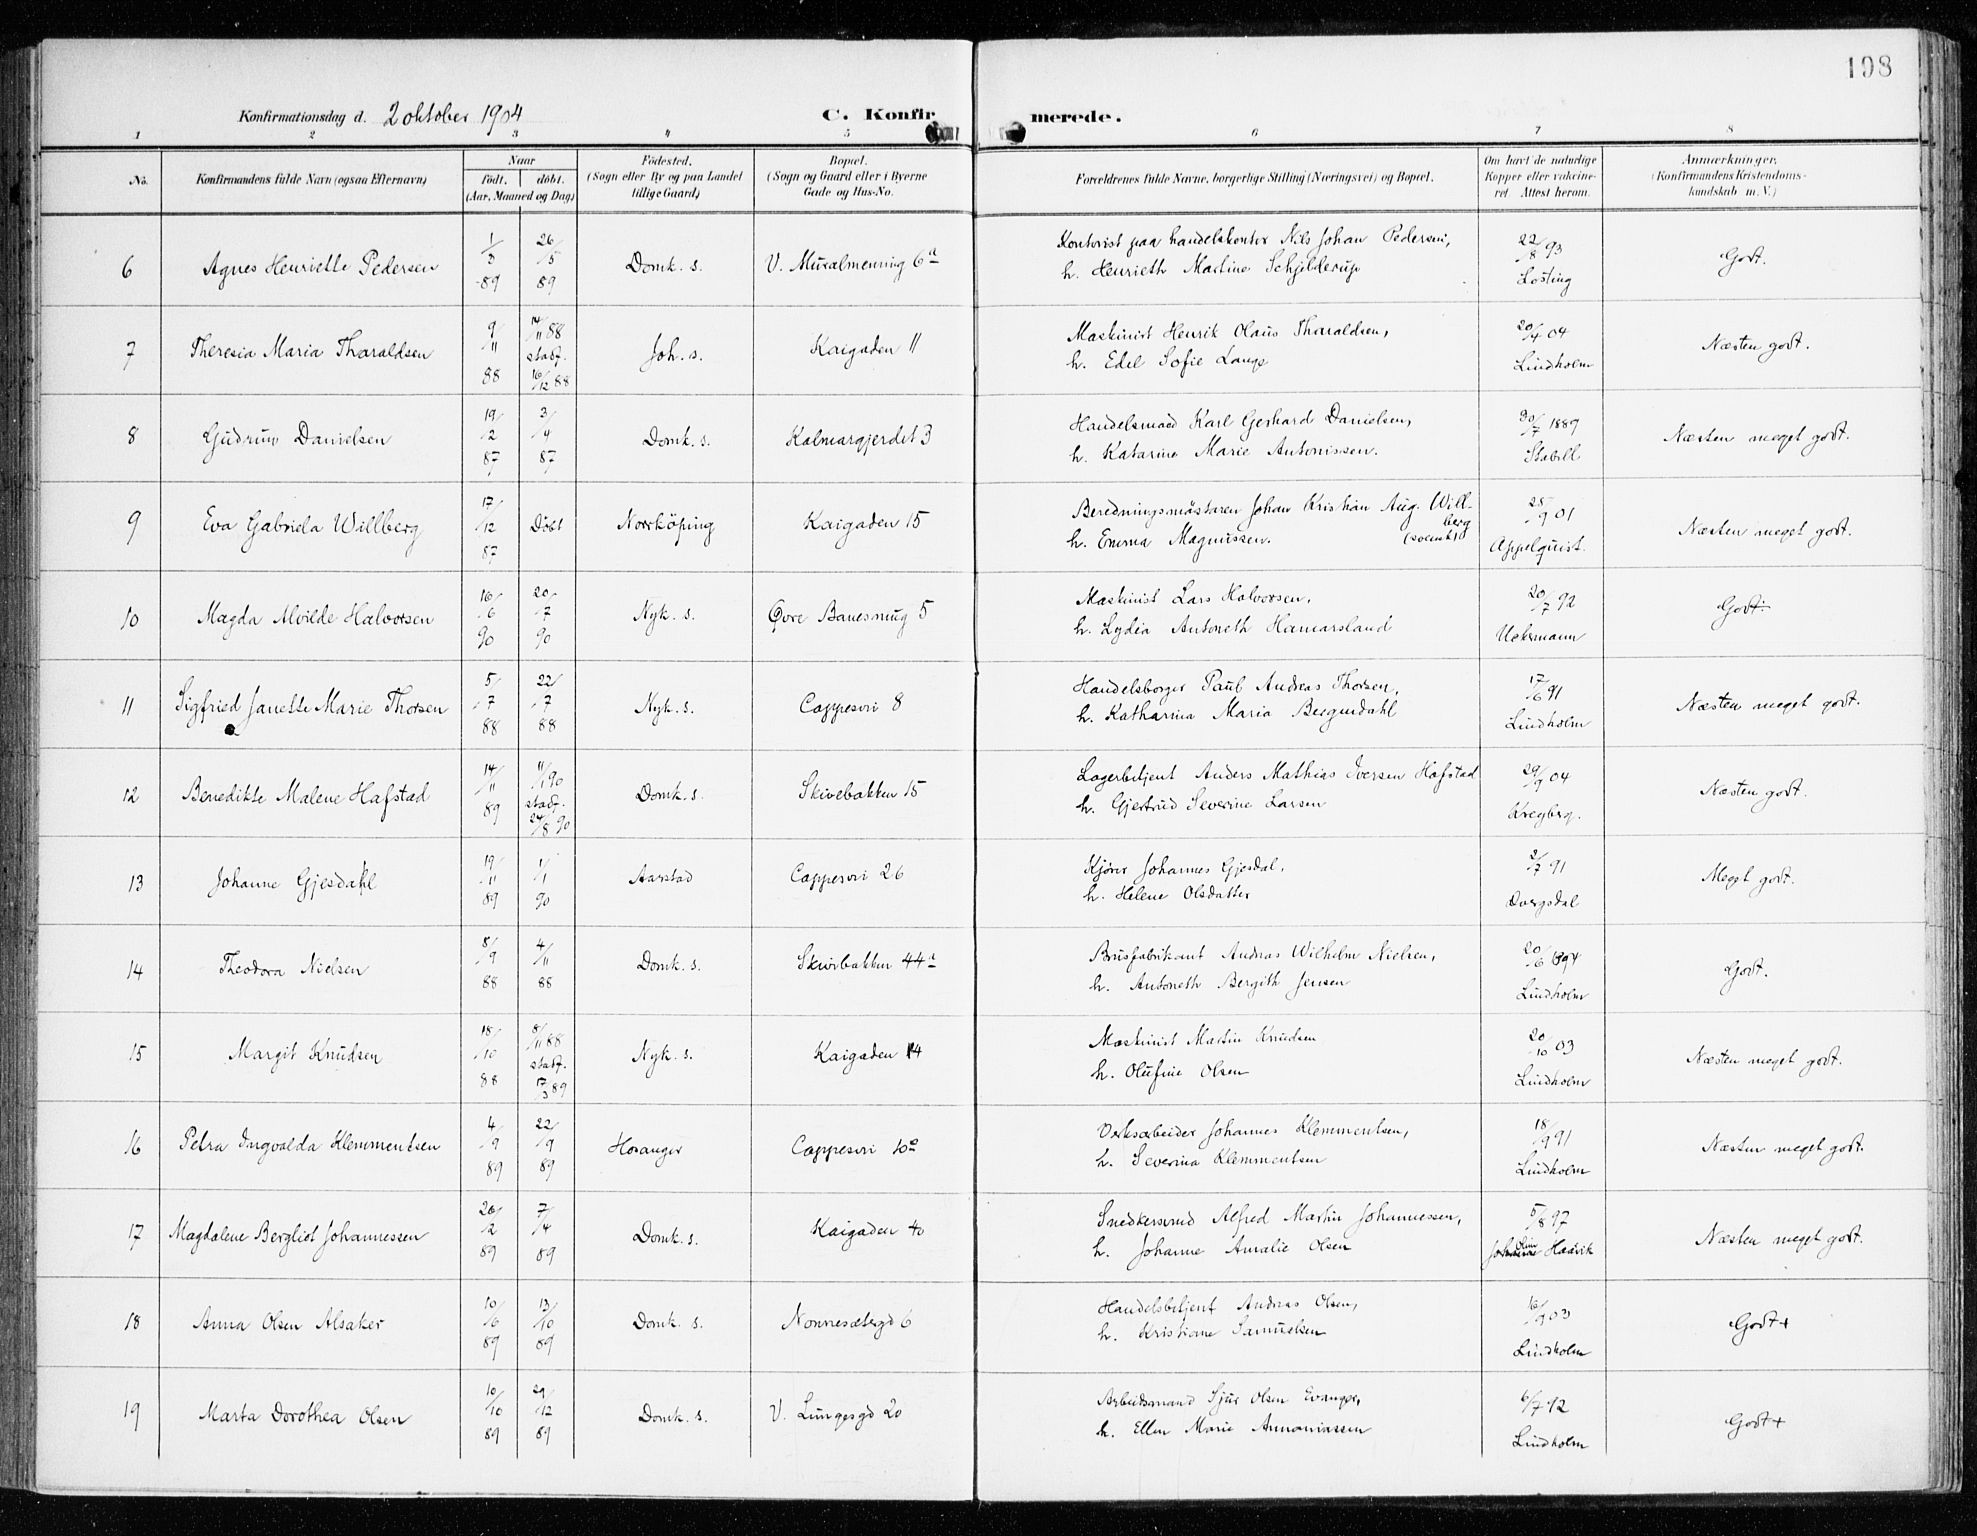 198
Konfirmationsdag d. 2 oktober 1904
C. Konfirmerede.
1 2 3 " 5 6 7 8
No. Konfirmandens fulde Navn (ogsaa Efternavn) Naar födt. döbt. (Aar, Maaned og Dag) Födested. (Sogn eller By og paa Landet tillige Gaard) Bopæl. (Sogn og Gaard eller i Byerne Gade og Hus-No. Forældrenes fulde Navne, borgerlige Stilling (Næringsvei) og Bopæl. Om havt de naturlige Kopper eller vakcineret. Attest herom. Anmærkninger, (Konfirmandens Kristendomskundskab m. V.)
6 Agnes Henriette Pedersen 1/3 89 26/5 89 Domk. s. V. Muralmenning 6a Kontorist paa handelskontor Nils Johan Pedersen, h. Henrieth Martine Schjelderup 22/8 93 Losting Godt.
7 Theresia Maria Tharaldsen 9/11 88 14/11 88 stadf. 16/12 88 Joh. s. Kaigaden 11 Maskinist Henrik Olaus Tharaldsen, h. Edel Sofie Lange 20/4 04 Lindholm Næsten godt.
8 Gudrun Danielsen 19/2 87 3/4 87 Domk. s. Kalmargjerdet 3 Handelsmand Karl Gerhard Danielsen, h. Katarine Marie Antonissen. 30/7 1889 Stabell Næsten meget godt.
9 Eva Gabriela Willberg 17/12 87 Döbt Norrköping Kaigaden 15 Beredningsmästaren Johan Kristian Aug. Willberg (svensk) h. Emma Magnussen. 25/9 01 Appelquist. Næsten meget godt.
10 Magda Alvilde Halvorsen 16/6 90 20/7 90 Nyk. s. Øvre Banesmug 5 Maskinist Lars Halvorsen, h. Lydia Antoneth Hamarsland 20/7 92 Uckermann Godt÷
11 Sigfried Janette Marie Thorsen 5/7 88 22/7 88 Nyk. s. Cappesvei 8 Handelsborger Paul Andreas Thorsen, h. Katharina Maria Bergendahl 17/6 91 Lindholm Næsten meget godt.
12 Benedikte Malene Hafstad 14/11 89 11/1 90 stadf. 24/8 90 Domk. s. Skivebakken 15 Lagerbetjent Anders Mathias Iversen Hafstad h. Gjertrud Severine Larsen 29/9 04 Kregberg. Næsten godt.
13 Johanne Gjesdahl 19/11 89 1/1 90 Aarstad Cappesvei 26 Kjører Johannes Gjesdal, h. Helene Olsdatter 2/7 91 Dvergsdal Meget godt.
14 Theodora Nielsen 8/9 88 4/11 88 Domk. s. Skivebakken 44a Brusfabrikant Andreas Wilhelm Nielsen, h. Antoneth Bergith Jensen 20/6 1894 Lindholm Godt.
15 Margit Knudsen 18/10 88 8/11 88 stadf. 17/3 89 Nyk. s. Kaigaden 14 Maskinist Martin Knudsen h. Olufine Olsen 20/10 03 Lindholm Næsten meget godt.
16 Petra Ingvalda Klemmentsen 4/9 89 22/9 89 Hosanger Cappesvei 10a Verksarbeider Johannes Klemmentsen, h. Severina Klemmentsen 18/9 91 Lindholm Næsten meget godt.
17 Magdalene Bergliot Johannessen 20/2 89 7/4 89 Domk. s. Kaigaden 40 Snedkersvend Alfred Martin Johannessen, h. Johanne Amalie Olsen 5/8 97 Haavik Næsten meget godt.
18 Anna Olsen Alsaker 10/6 89 13/10 89 Domk. s. Nonnesætergd 6 Handelsbetjent Andreas Olsen, h. Kristiane Samuelsen 16/9 03 Lindholm Godt+
19 Marta Dorothea Olsen 10/10 89 29/12 89 Domk. s. V. Lungegd 20 Arbeidsmand Sjur Olsen Evanger, h. Ellen Marie Annaniassen 6/7 92 Lindholm Godt+